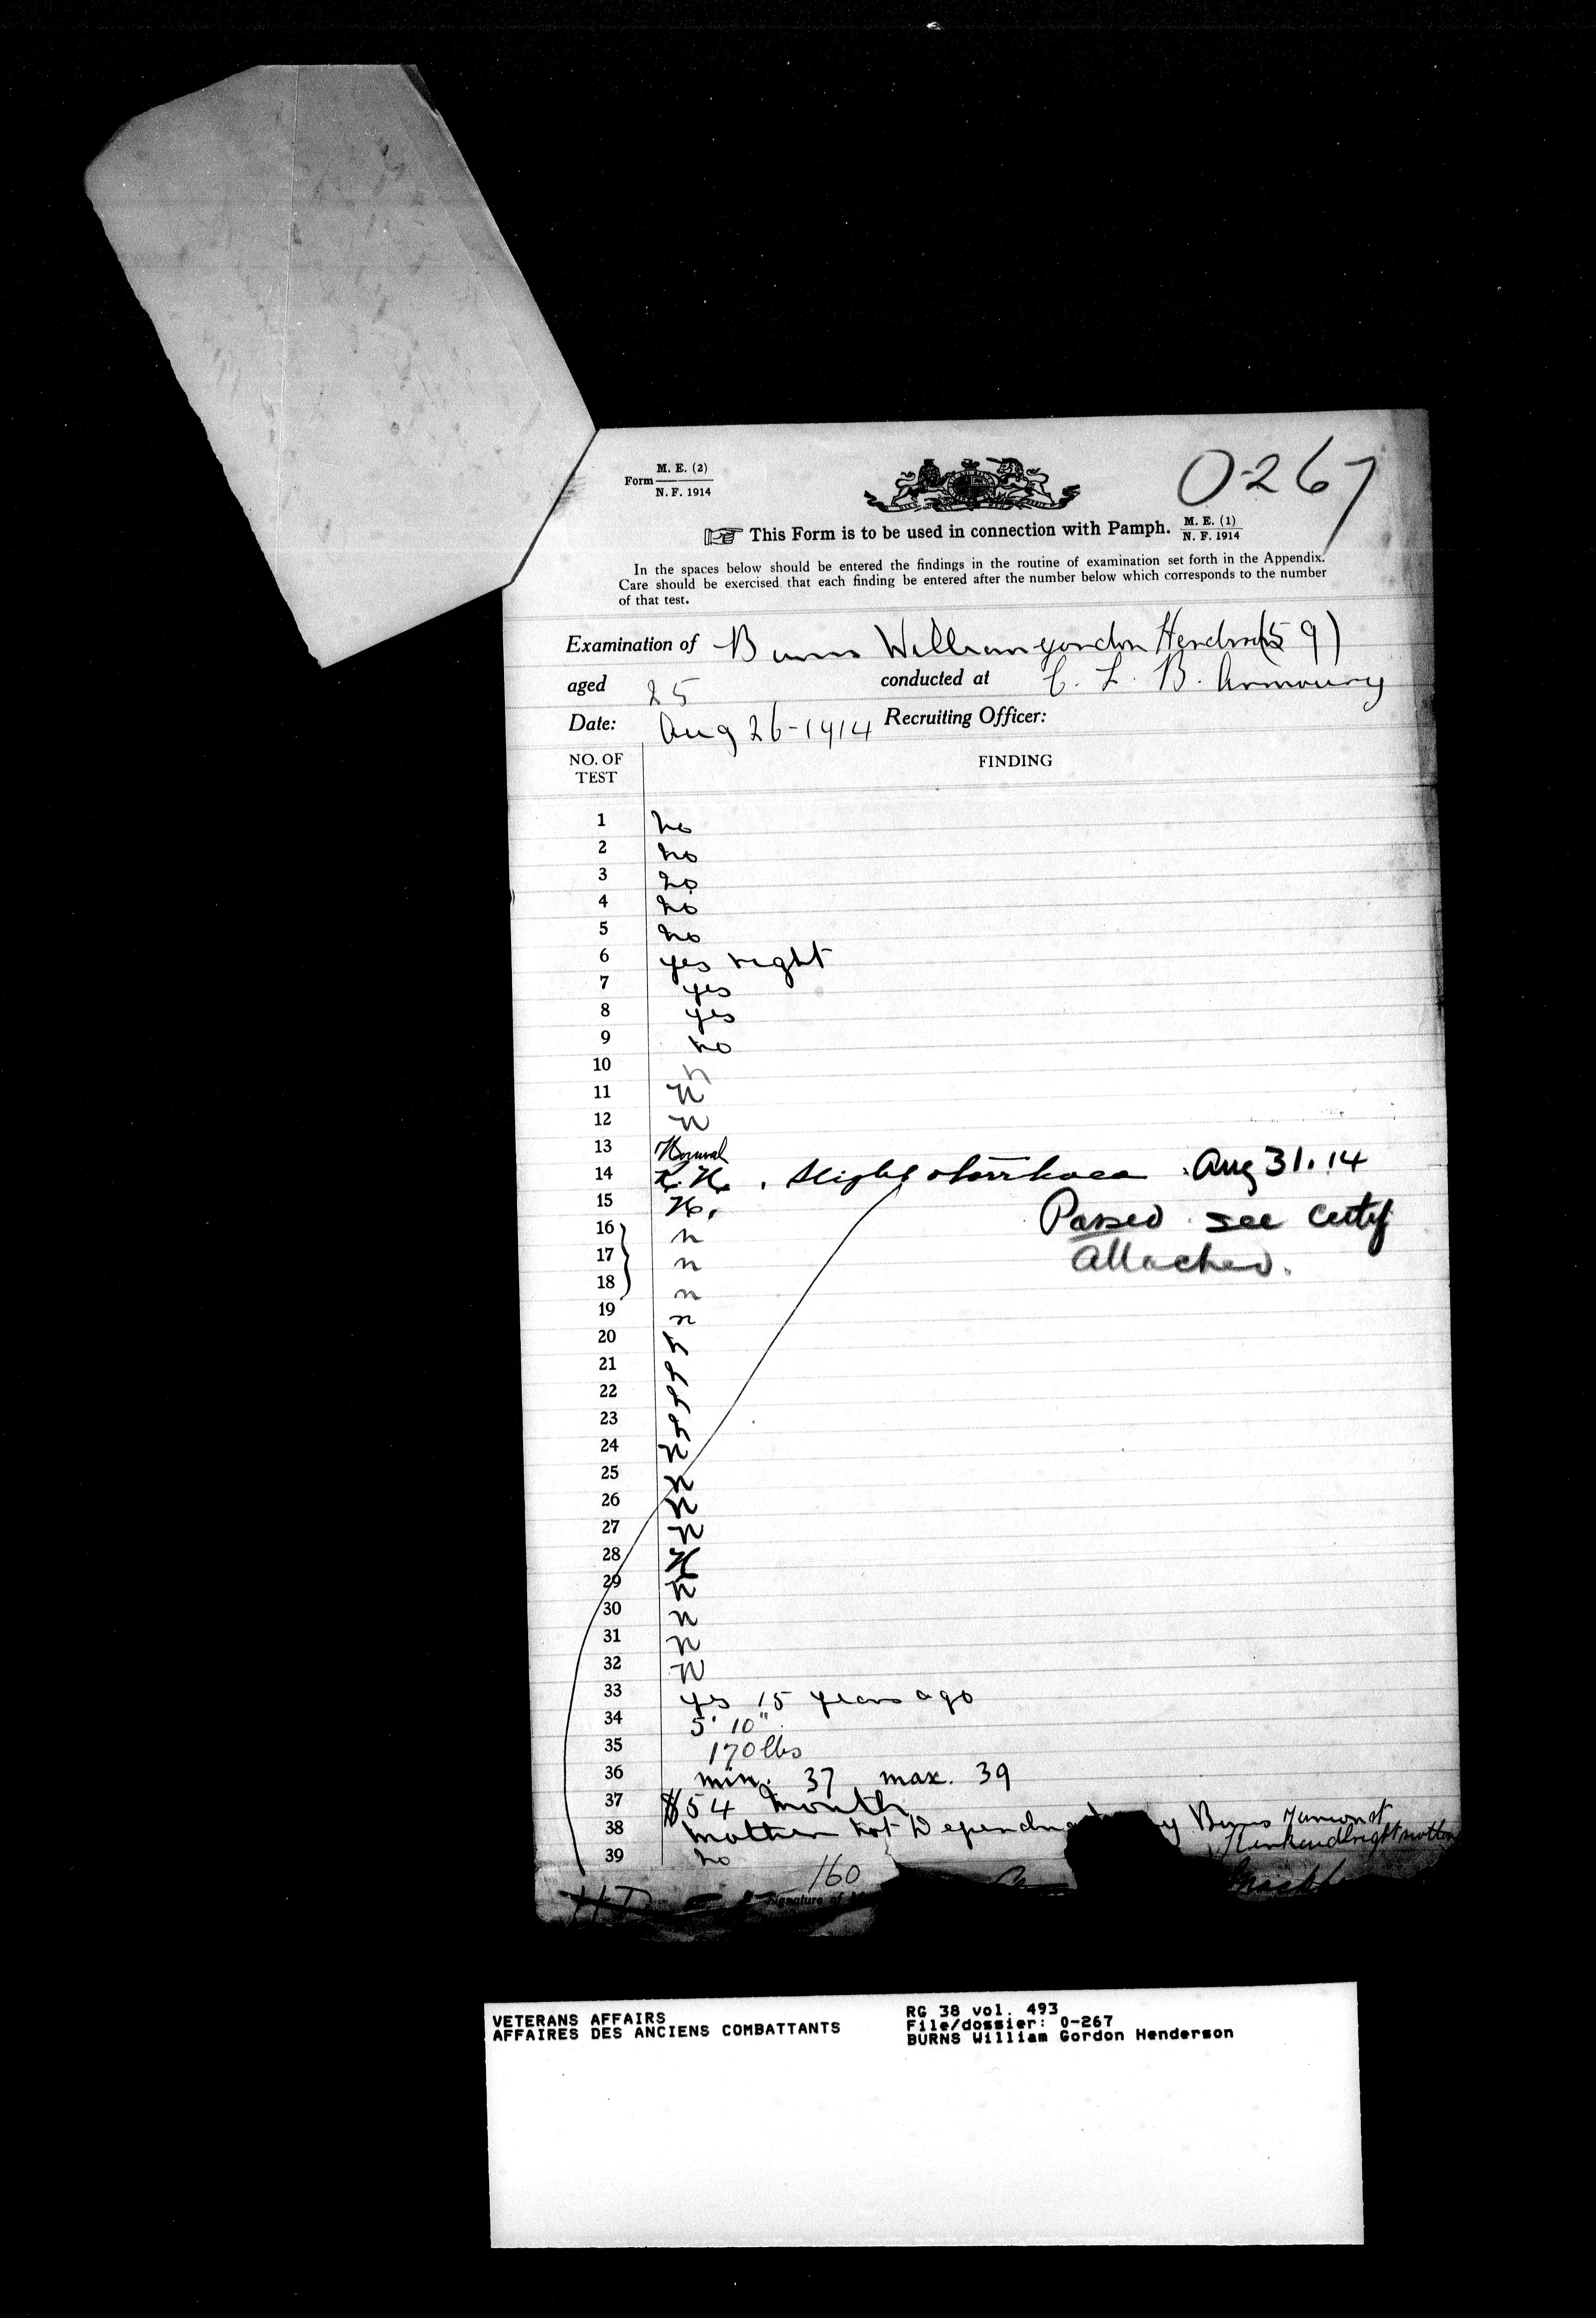 Form M. E. (2)
N. F. 1914
0-267
This Form is to be used in connection with Pamph. M. E. (1)
N. F. 1914
In the spaces below should be entered the findings in the routine of examination set forth in the Appendix.
Care should be exercised that each finding be entered after the number below which corresponds to the number
of that test.
Examination of Burns William Gordon (59)
aged 25 conducted at C. L. B. Armoury
Date: Aug 26-1914 Recruiting Officer:
NO. OF TEST FINDING
1 no
2 no
3 no
4 no
5 no
6 yes right
7 yes
8 yes
9 no
10 n
11 N
12 N
13 Normal
14 Slight Aug 31. 14
15 N.
Passed see certif
16 n
17 n
attached.
18 n
19 n
20
21
22
23
24 N
25 N
26 N
27 N
28 N
29 N
30 N
31 N
32 N
33 yes 15 years ago
34 5' 10"
35 170 lbs
36 min. 37 max. 39
37 $54 month
38 mother not Burns
39 no
160
Signature of
VETERANS AFFAIRS
AFFAIRES DES ANCIENS COMBATTANTS
RG 38 vol. 493
File/dossier: 0-267
BURNS William Gordon Henderson